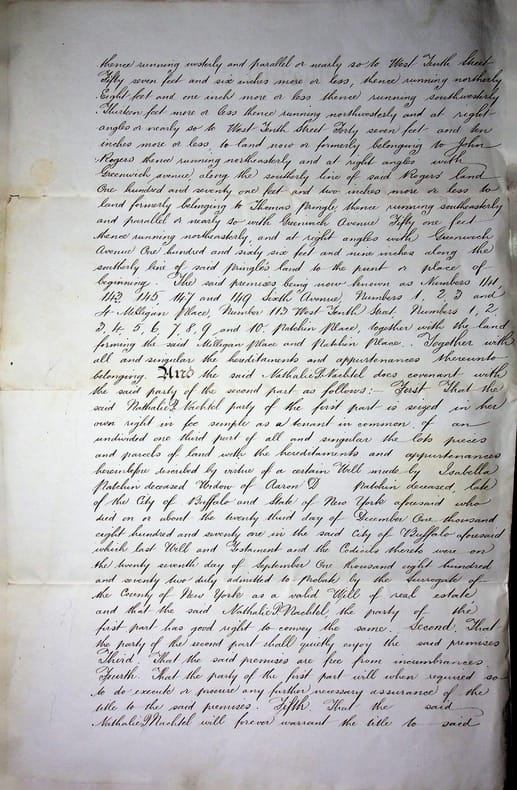 thence running westerly and parallel or nearly so to West Tenth Street
Fifty seven feet and six inches more or less, thence running northerly
Eight feet and one inch more or less thence running southwesterly
Thirteen feet more or less thence running northwesterly and at right
angles or nearly so to West Tenth Street Forty seven feet and ten
inches more or less, to land now or formerly belonging to John
Rogers thence running northeasterly and at right angles with
Greenwich avenue, along the southerly line of said Rogers' land
One hundred and seventy one feet and two inches more or less to
land formerly belonging to Thomas Pringle thence running southeasterly
and parallel or nearly so with Greenwich Avenue Fifty one feet
thence running northeasterly, and at right angles with Greenwich
Avenue One hundred and sixty six feet and nine inches along the
southerly line of said Pringles land to the point or place of
beginning. The said premises being now known as Numbers 141,
143, 145, 147 and 149 Sixth Avenue, Numbers 1, 2, 3 and
4 Milligan Place, Number 113 West Tenth Street, Numbers 1, 2,
3, 4, 5, 6, 7, 8, 9 and 10 Patchin Place, together with the land
forming the said Milligan Place and Patchin Place. Together with
all and singular the hereditaments and appurtenances thereunto
belonging. And the said Nathalie P. Nachtel does covenant with
the said party of the second part as follows:— First. That the
said Nathalie P. Nachtel party of the first part is seized in her
own right in fee simple as a tenant in common, of an
undivided one third part of all and singular the lots pieces
and parcels of land with the hereditaments and appurtenances
hereinbefore described by virtue of a certain Will made by Isabella
Patchin deceased Widow of Aaron D Patchin deceased, late
of the City of Buffalo and State of New York aforesaid who
died on or about the twenty third day of December One thousand
eight hundred and seventy one in the said City of Buffalo aforesaid
which last Will and Testament and the Codicils thereto were on
the twenty seventh day of September One thousand eight hundred
and seventy two duly admitted to Probate by the Surrogate of
the County of New York as a valid Will of real estate
and that the said Nathalie P. Nachtel, the party of the
first part has good right to convey the same. Second. That
the party of the second part shall quietly enjoy the said premises
Third. That the said premises are free from incumbrances.
Fourth. That the party of the first part will when required so
to do execute or procure any further necessary assurance of the
title to the said premises. Fifth. That the said
Nathalie P. Nachtel will forever warrant the title to said